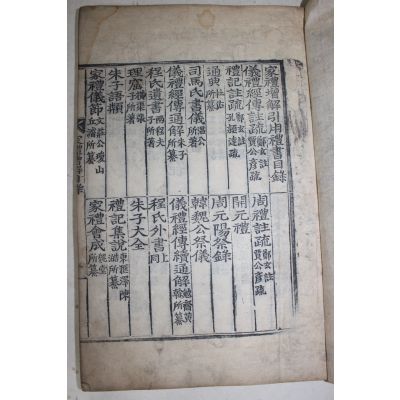 家禮增解引用禮書目錄
儀禮經傳註疏 鄭玄註 賈公彥疏 周禮註疏 鄭玄註 賈公彥疏
禮記註疏 鄭玄註 孔穎達疏 開元禮
通典 杜佑所纂 周元陽祭錄
司馬氏書儀 溫公所纂 韓魏公祭儀
儀禮經傳通解 朱子所纂 儀禮經傳續通解 勉齋黃榦所纂
程氏遺書 兩程夫子所著 程氏外書 同上
理窟 橫渠張子所著 朱子大全
朱子語類 禮記集說 東匯澤陳澔所纂
家禮儀節 文莊公瓊山丘濬所纂 家禮會成 魏堂所纂